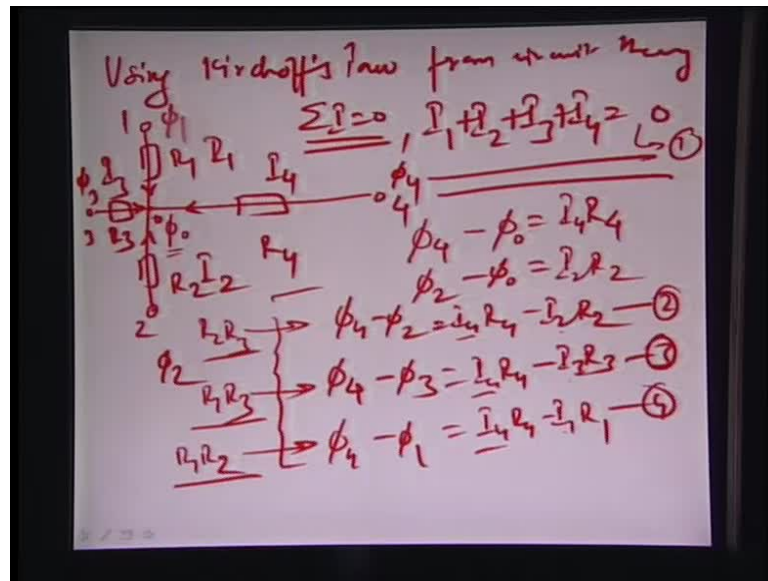 Using Kirchoff's law from circuit theory
1 ϕ₁ ΣI=0, I₁+I₂+I₃+I₄= 0
①
R₁ I₁ I₄ ϕ₄
ϕ₃ I₃ 4
3 R₃ 0 ϕ₀ ϕ₄ - ϕ₀ = I₄R₄
R₂ I₂ R₄ ϕ₂ - ϕ₀ = I₂R₂
2 R₂R₃ → ϕ₄-ϕ₂ = I₄R₄ - I₂R₂ — ②
ϕ₂
R₁R₃ → ϕ₄ - ϕ₃ = I₄R₄ - I₃R₃ — ③
R₁R₂ → ϕ₄ - ϕ₁ = I₄R₄ - I₁R₁ — ④